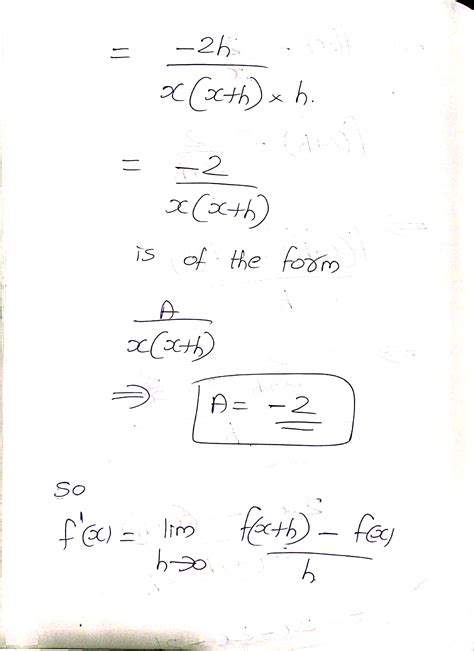 = -2h / x(x+h) × h.
= -2 / x(x+h)
is of the form
A / x(x+h)
⇒ A = -2
so
f'(x) = lim h→0 f(x+h) - f(x) / h